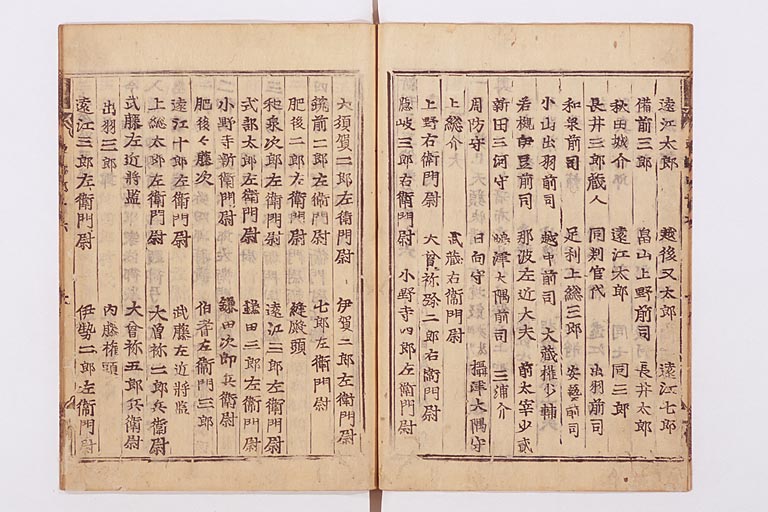 遠江太郎　越後又太郎　遠江七郎
備前三郎　畠山上野前司　長井太郎
秋田城介　遠江太郎　同三郎
長井三郎蔵人　同判官代　出羽前司
和泉前司　足利上総三郎　安藝前司
小山出羽前司　越中前司　大蔵権少輔
若槻伊豆前司　那波左近大夫　前太宰少貳
新田三河守　大隅前司　三浦介
周防守　日向守　攝津大隅守
上総介　武蔵右衛門尉
上野右衛門尉　大曽祢　二郎右衛門尉
隠岐三郎右衛門尉　小野寺四郎左衛門尉
大須賀二郎左衛門尉　伊賀二郎左衛門尉
筑前二郎左衛門尉　七郎左衛門尉
肥後二郎左衛門尉　縫殿頭
和泉次郎左衛門尉　遠江三郎左衛門尉
式部太郎左衛門尉　鎌田三郎左衛門尉
小野寺新衛門尉　鎌田次郎兵衛尉
肥後藤次　伯耆左衛門三郎
遠江十郎左衛門尉　武藤左近將監
上総太郎左衛門尉　大曽祢二郎兵衛尉
武藤左近將監　大曽祢五郎兵衛尉
出羽三郎　内藤権頭
遠江三郎左衛門尉　伊勢二郎左衛門尉